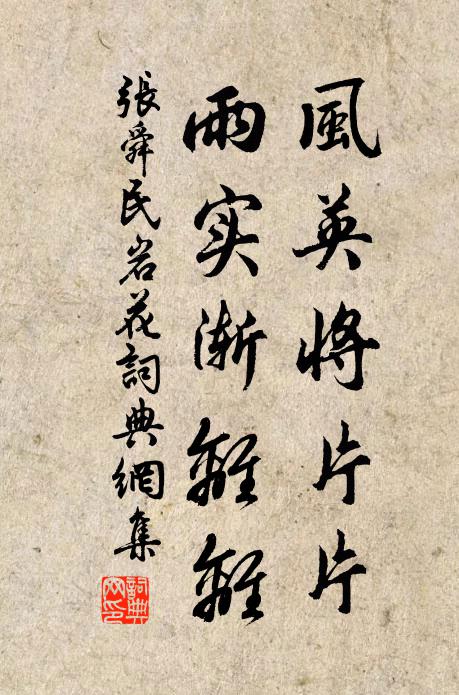 風英將片片
雨实漸離離
張舜民岩花詞典網集
詞典網印